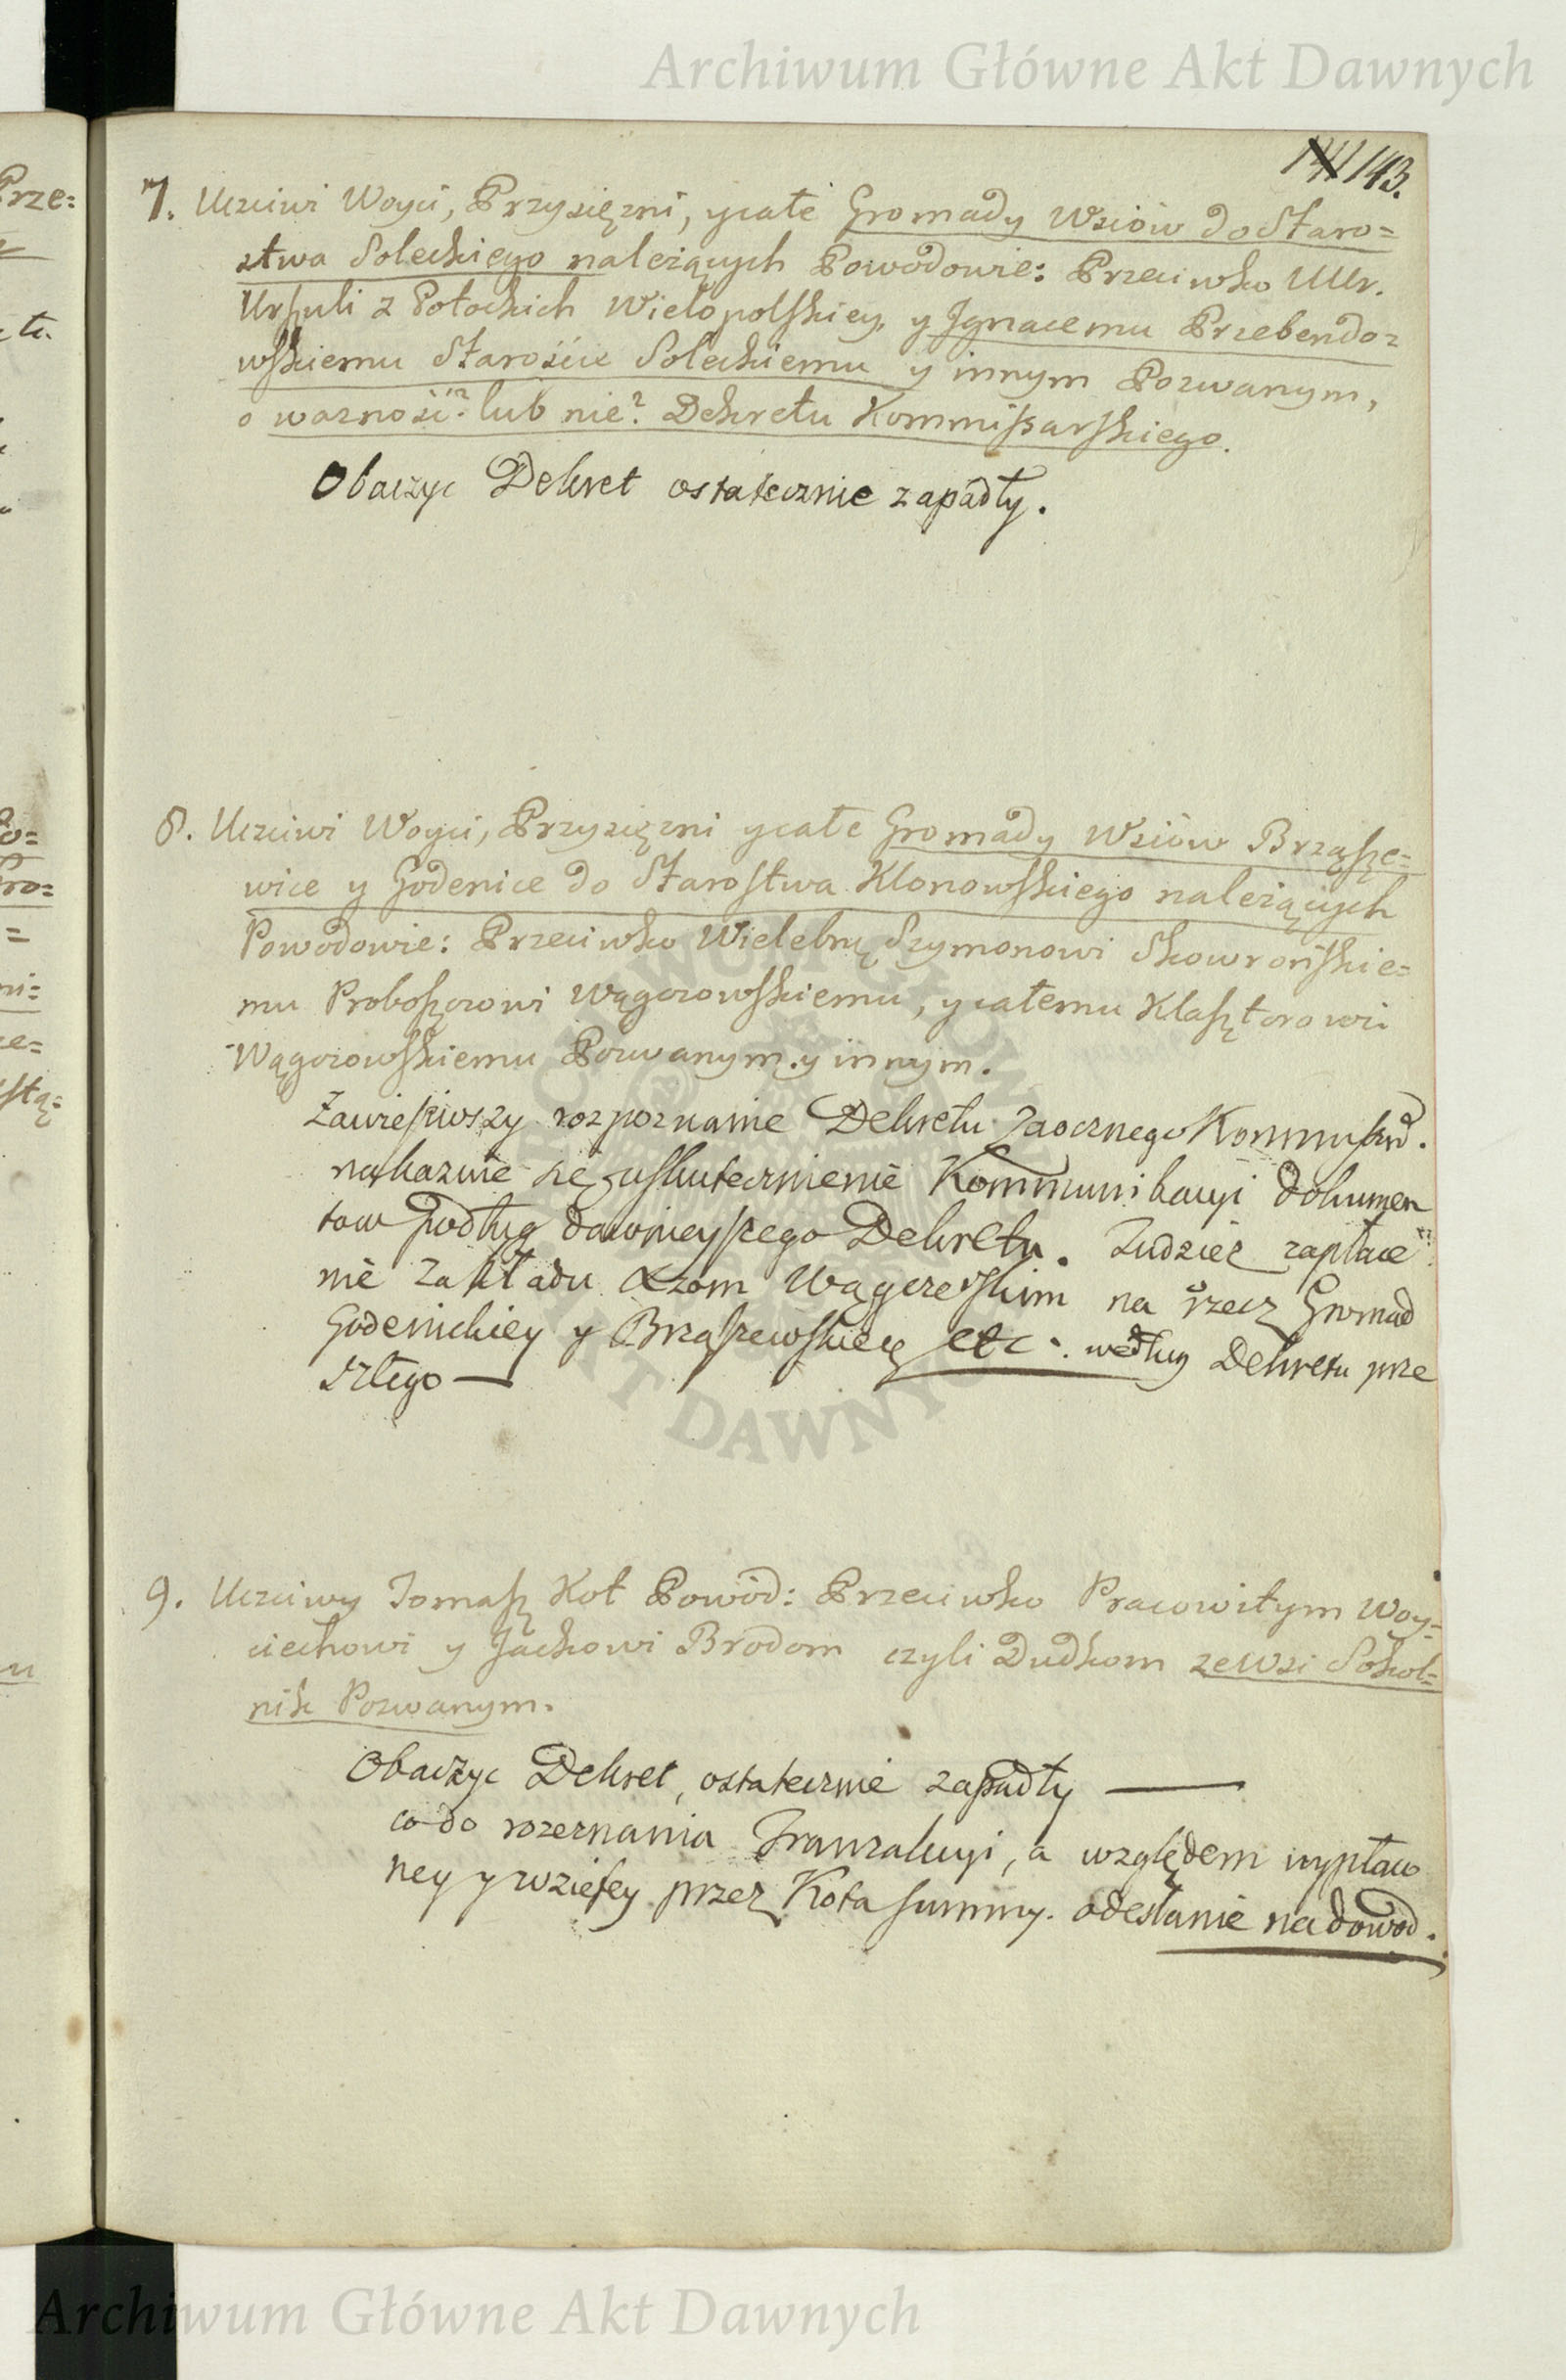 Archiwum Główne Akt Dawnych
143.
7. Uczciwi Woyci, Przysięzni, y całe Gromady Wsiów do Staro=
stwa Soleckiego należących Powodowie: Przeciwko Ur.
Urszuli z Potockich Wielopolskiey, y Ignacemu Przebendo=
wskiemu Starościе Soleckiemu y innym Pozwanym,
o wazność? lub nie? Dekretu Kommissarskiego.
Obaczyc Dekret ostatecznie zapadły.
8. Uczciwi Woyci, Przysięzni y całe Gromady Wsiów Brząsze=
wice y Godenice do Starostwa Klonowskiego należących
Powodowie: Przeciwko Wielebnę Szymonowi Skowrońskie=
mu Proboszczowi Wągczowskiemu, y całemu Klasztorowi
Wągczowskiemu Pozwanym. y innym.
Zawiesiwszy rozpoznanie Dekretu Zaocznego
nakazuie się uskutecznienie Kommunikacyi dokumen
tow podług dawnieyszego Dekretu. Tudzież zapłace
nie Zakładu Xzom na rzecz Gromad
Godenickiey y Brząszewskiey etc. według Dekretu prze
szłego —
9. Uczciwy Tomasz Kot Powód: Przeciwko Pracowitym Woy=
ciechowi y Jackowi Brodom czyli Dudkom ze Wsi Sokol=
nik Pozwanym.
Obaczyc Dekret, ostatecznie zapadły —
co do rozeznania Tranzakcyi, a względem wypłaco
ney y wziętey przez Kota summy. odesłanie na dowod.
ARCHIWUM GŁÓWNE
AKT DAWNYCH
Archiwum Główne Akt Dawnych